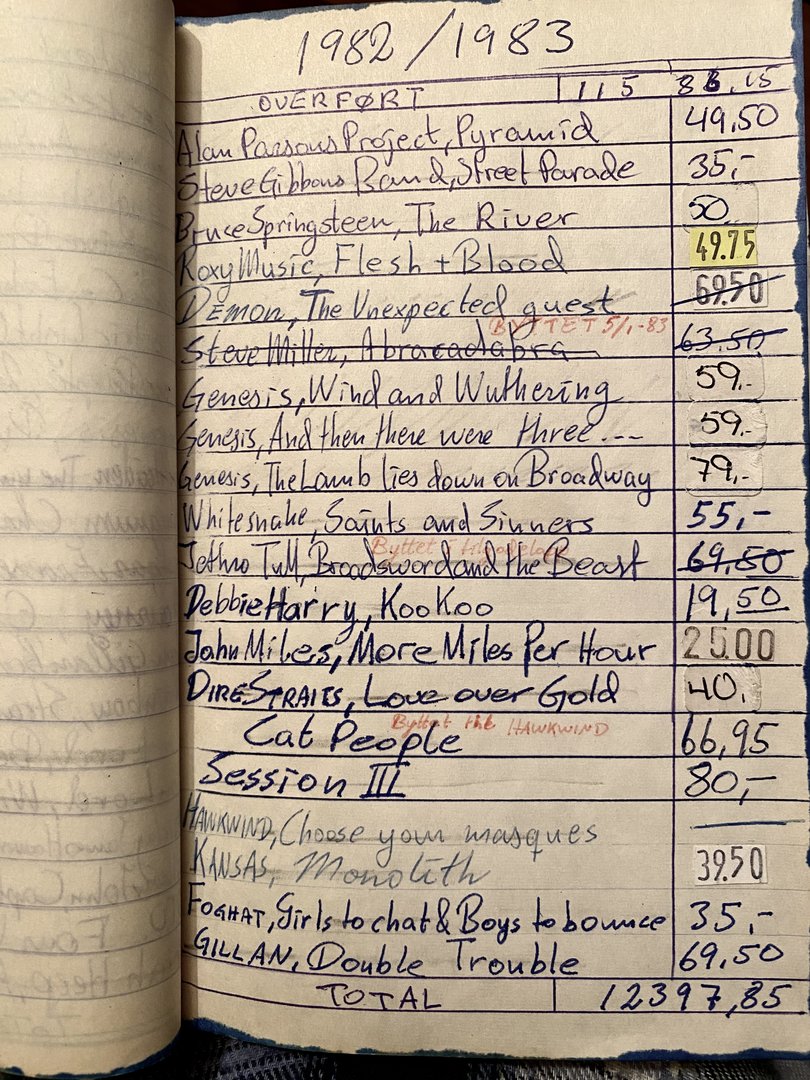 1982/1983
OVERFØRT 115 86,15
Alan Parsons Project, Pyramid 49,50
Steve Gibbons Band, Street Parade 35,-
Bruce Springsteen, The River 50,
Roxy Music, Flesh + Blood 49.75
DEMON, The Unexpected guest 69.50
BYTTET 5/1-83
Steve Miller, Abracadabra 63.50
Genesis, Wind and Wuthering 59.-
Genesis, And then there were three--- 59.-
Genesis, The Lamb lies down on Broadway 79,-
Whitesnake, Saints and Sinners 55,-
Byttet i
Jethro Tull, Broadsword and the Beast 69.50
Debbie Harry, KooKoo 19,50
John Miles, More Miles Per Hour 25.00
DIRE STRAITS, Love over Gold 40,
Byttet til HAWKWIND
Cat People 66,95
Session III 80,-
HAWKWIND, Choose your masques —
KANSAS, Monolith 39.50
FOGHAT, Girls to chat & Boys to bounce 35,-
GILLAN, Double Trouble 69,50
TOTAL 12397,85